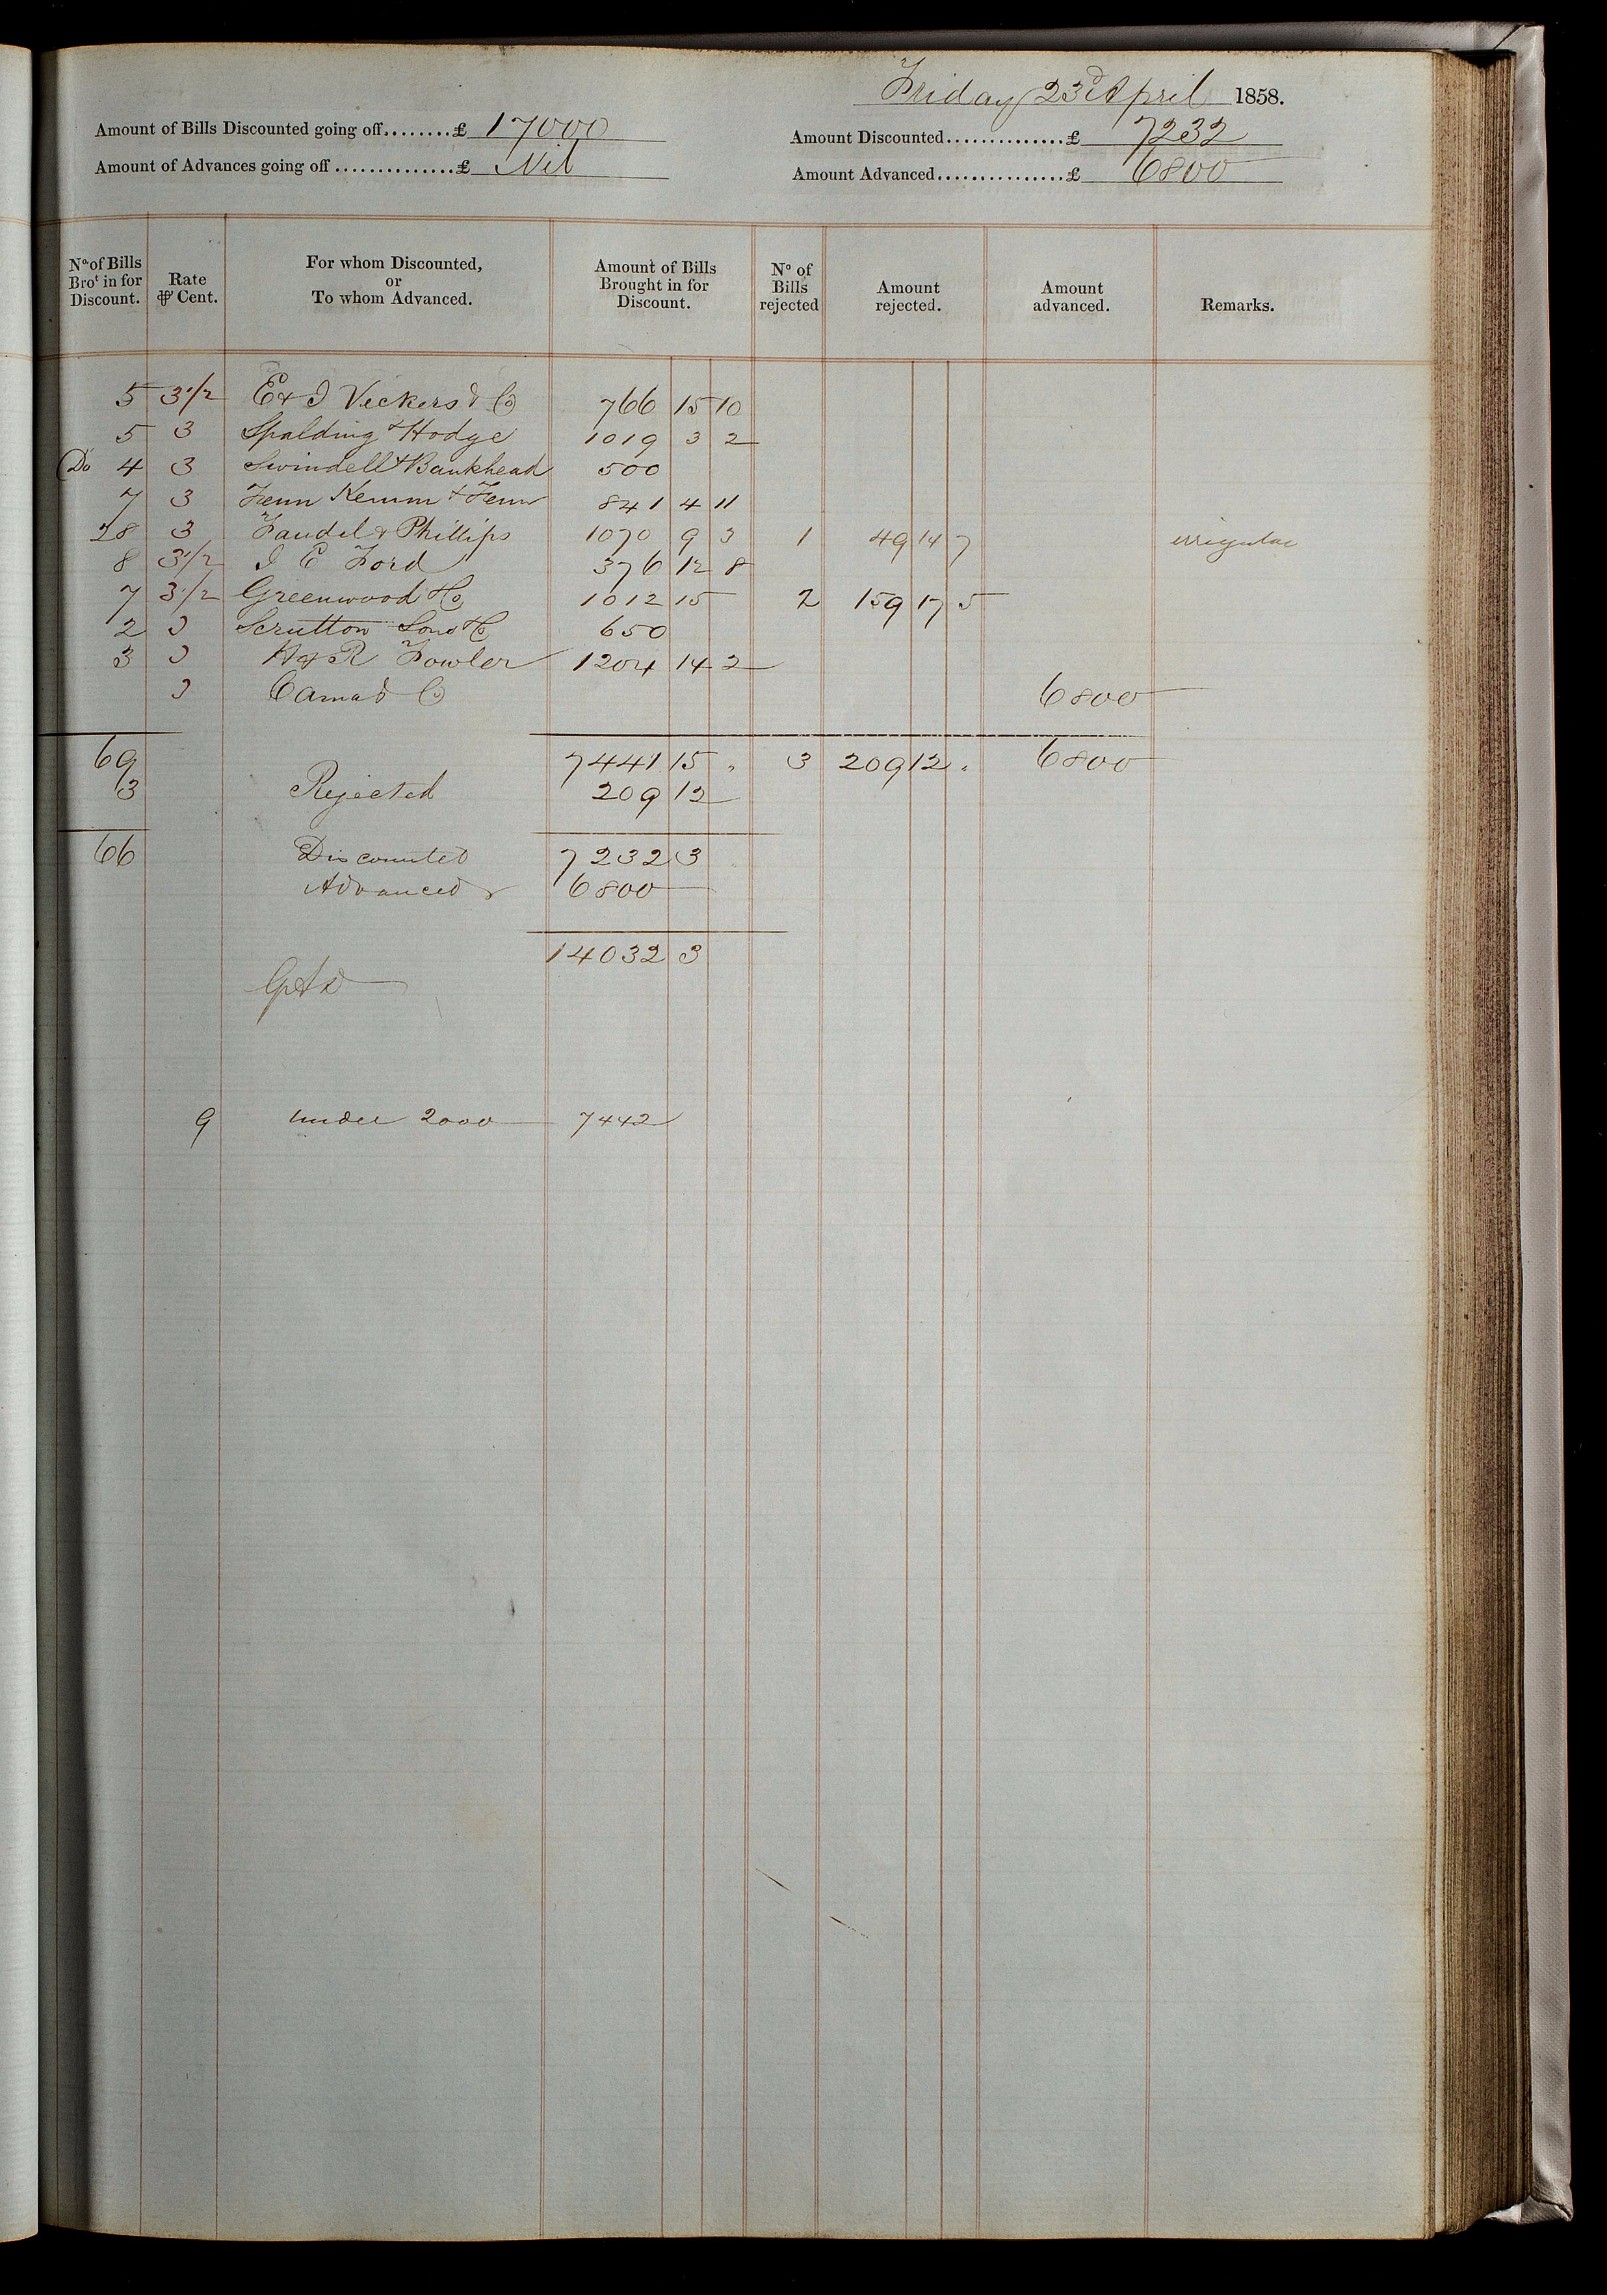 Friday 23d April 1858.
Amount of Bills Discounted going off........£ 17000
Amount Discounted..............£ 7232
Amount of Advances going off..............£ Nil
Amount Advanced...............£ 6800
No. of Bills Brot in for Discount. Rate ⅌ Cent. For whom Discounted, or To whom Advanced. Amount of Bills Brought in for Discount. No of Bills rejected Amount rejected. Amount advanced. Remarks.
5 3 1/2 E & J Vickers & Co 766 15 10
5 3 Spalding & Hodge 1019 3 2
Do 4 3 Swindell & Bankhead 500
7 3 Fenn Kemm & Fenn 841 4 11
28 3 Faudel & Phillips 1070 9 3 1 49 14 7 irregular
8 3 1/2 J E Ford 376 12 8
7 3 1/2 Greenwood & Co 1012 15 2 159 17 5
2 3 Scrutton Sons & Co 650
3 3 H & R Fowler 1204 14 2
3 Cama & Co 6800
69 7441 15 " 3 209 12 " 6800
3 Rejected 209 12
66 Discounted 7232 3
Advanced 6800
14032 3
9 under 2000 7442